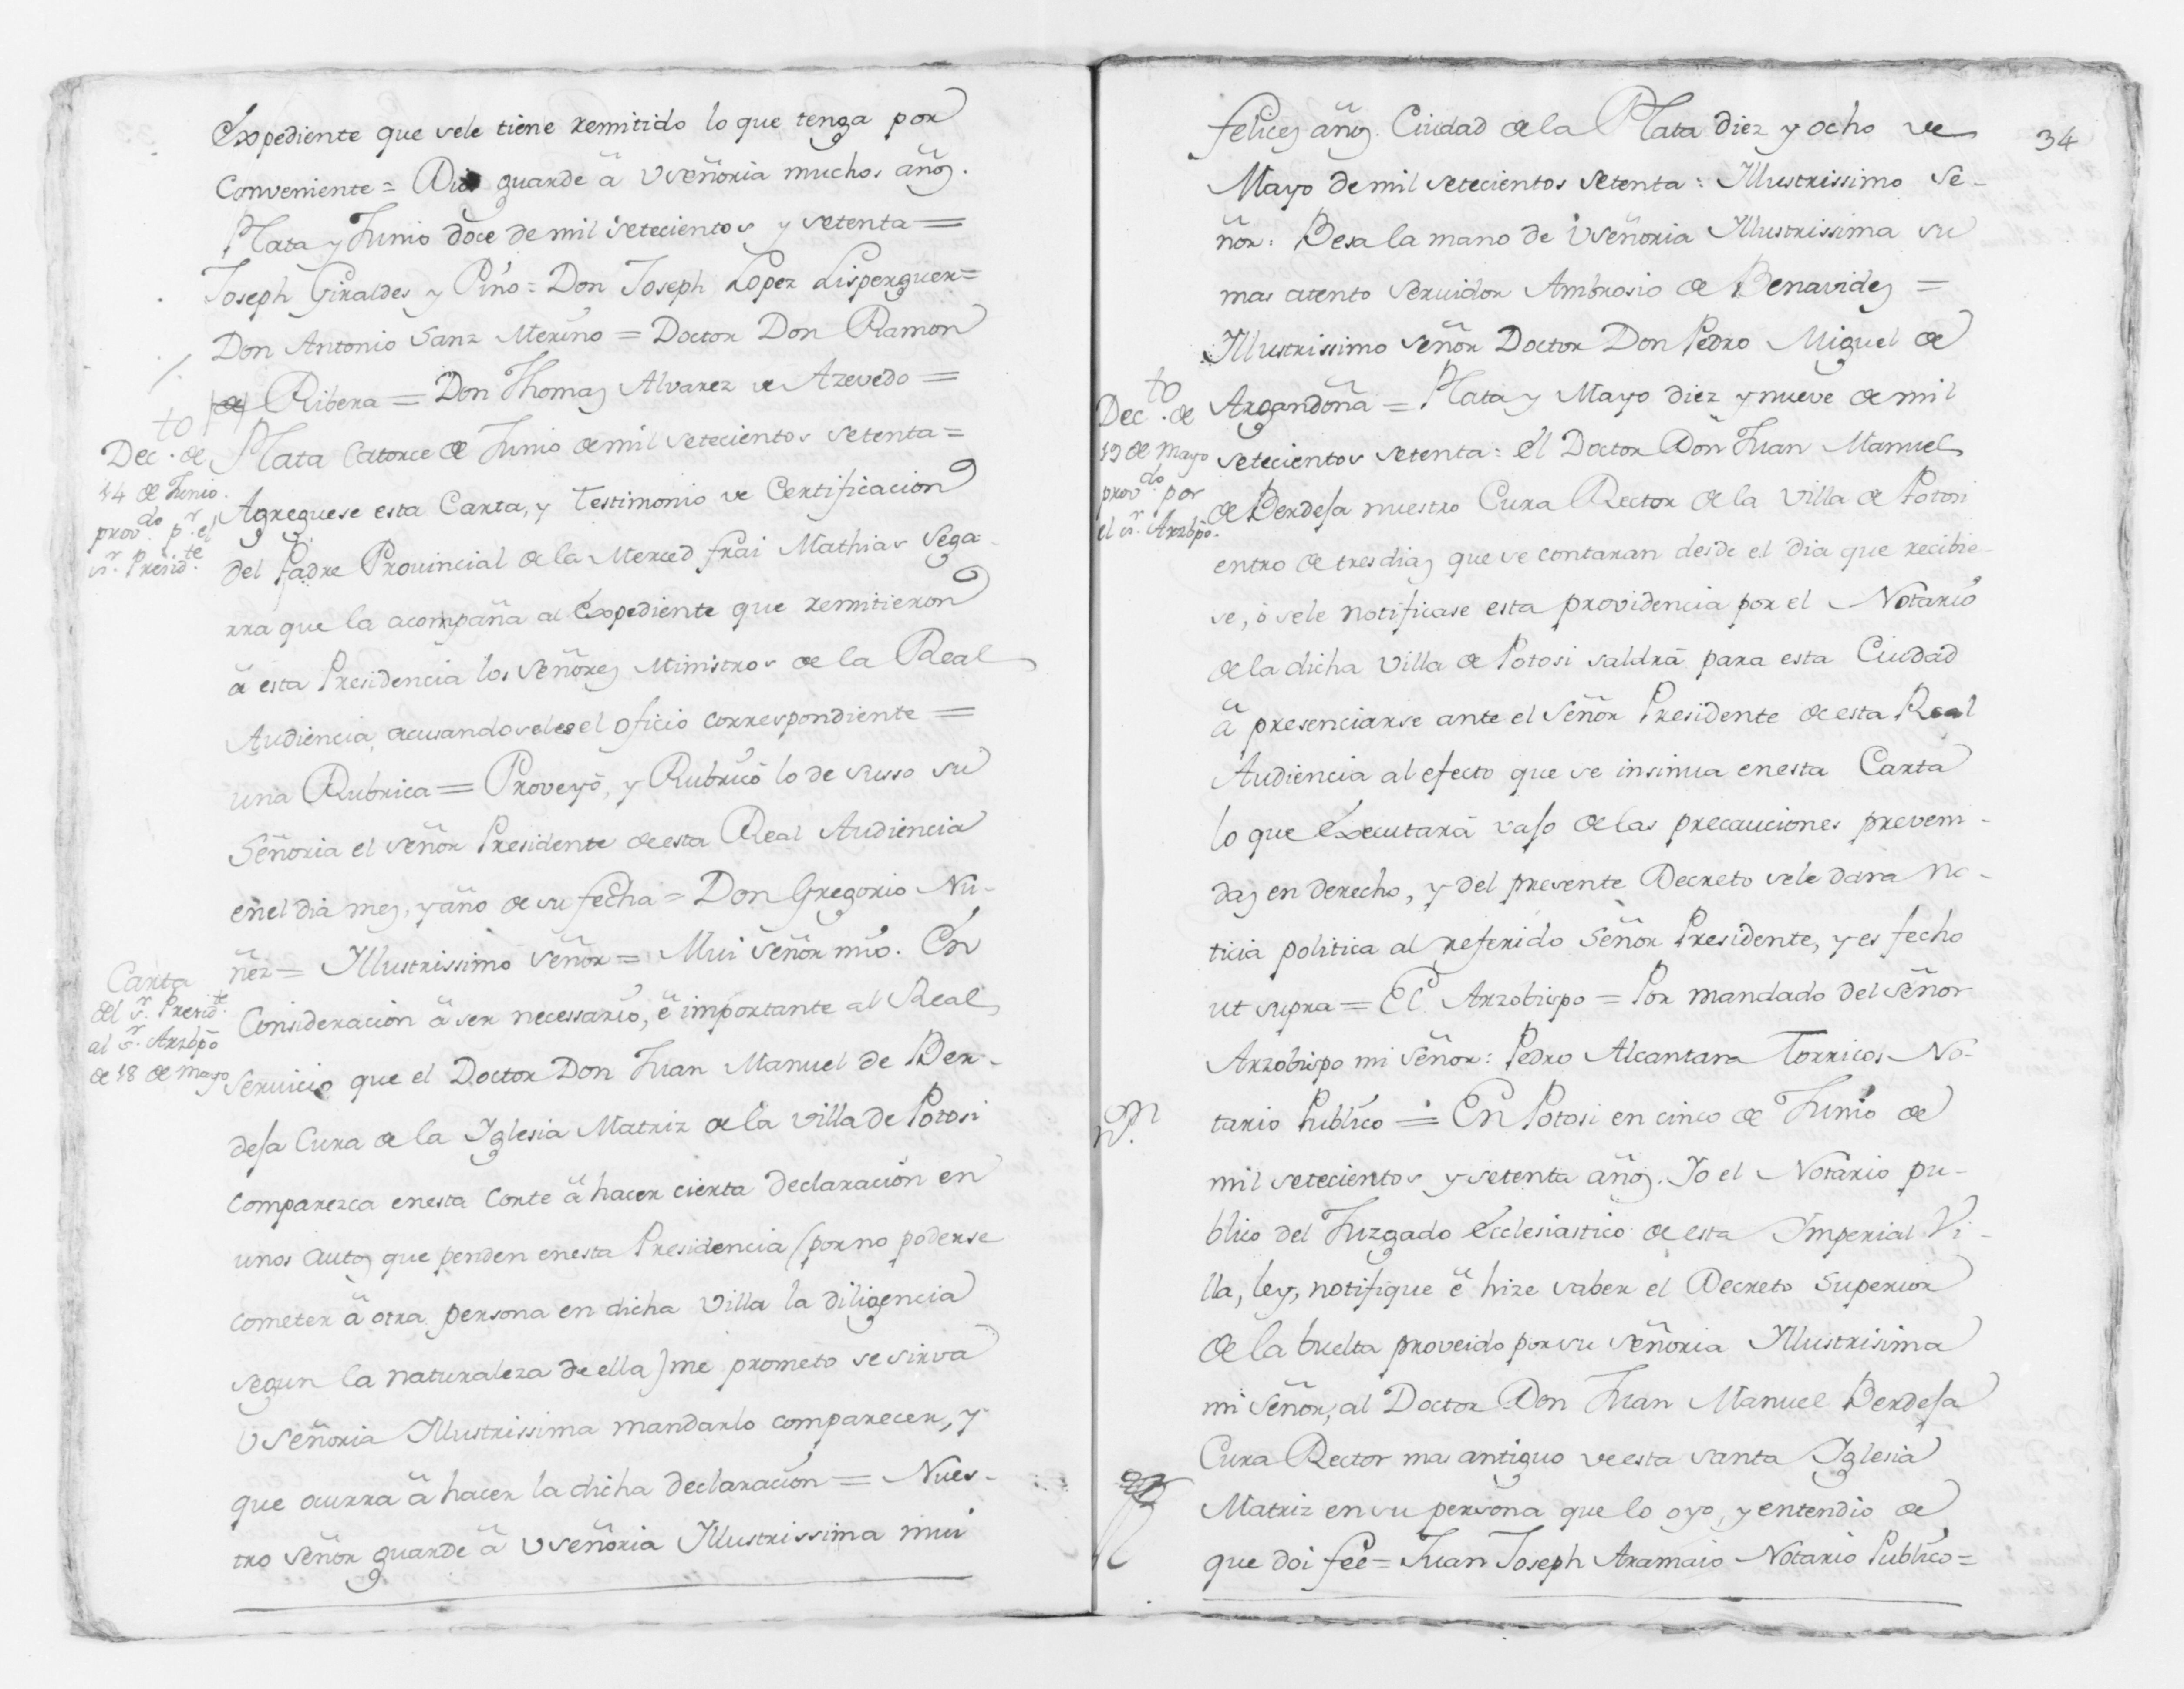 Expediente que sele tiene remitido lo que tenga por
Conveniente = Dios guarde â Vseñoria muchos años.
Plata y Junio doce de mil setecientos y setenta =
Joseph Giraldes y Pino = Don Joseph Lopez Lisperguer =
Don Antonio Sanz Merino = Doctor Don Ramon
de Ribera = Don Thomas Alvarez de Azevedo =
Dec.to de
14 de Junio.
prov.do p.r el
s.r Presid.te
Plata Catorce de Junio de mil setecientos setenta =
Agreguese esta Carta, y Testimonio de Certificacion
del Padre Provincial de la Merced frai Mathias Sega-
rra que la acompaña al Expediente que remitieron
â esta Presidencia los Señores Ministros de la Real
Audiencia, acusandoseles el oficio correspondiente =
una Rubrica = Proveyò, y Rubricò lo de susso su
Señoria el señor Presidente de esta Real Audiencia
enel dia mes, y año de su fecha = Don Gregorio Nu-
ñez = Illustrissimo señor = Mui señor mio. En
Carta
del s.r Presid.te
al s.r Arzbpō
de 18 de Mayo
Consideracion â ser necessario, ê importante al Real
Servicio que el Doctor Don Juan Manuel de Ber-
desa Cura de la Yglesia Matriz de la villa de Potosi
comparezca enesta Corte â hacer cierta Declaracion en
unos autos que penden enesta Presidencia (por no poderse
cometer â otra persona en dicha Villa la diligencia
segun la naturaleza de ella) me prometo se sirva
Vseñoria Illustrissima mandarlo comparecer, y
que ocurra â hacer la dicha declaracion = Nues-
tro señor guarde â Vseñoria Illustrissima mui
34
felices años. Ciudad de la Plata diez y ocho de
Mayo de mil setecientos setenta = Illustrissimo Se-
ñor = Besa la mano de Vseñoria Illustrissima su
mas atento servidor Ambrosio de Benavides =
Illustrissimo señor Doctor Don Pedro Miguel de
Argandoña = Plata y Mayo diez y nueve de mil
Dec.to de
19 de Mayo
prov.do por
el s.r Arzbpō.
setecientos setenta = el Doctor Don Juan Manuel
de Berdesa nuestro Cura Rector de la Villa de Potosi
entro de tres dias que se contaran desde el dia que recibie-
se, ò sele notificase esta providencia por el Notario
de la dicha Villa de Potosi saldrà para esta Ciudad
â presenciarse ante el señor Presidente de esta Real
Audiencia al efecto que se insinua enesta Carta
lo que executarà vajo de las precauciones preveni-
das en derecho, y del presente Decreto sele dara no-
ticia politica al referido Señor Presidente, y es fecho
ut supra = El Arzobispo = Por mandado del señor
Arzobispo mi señor = Pedro Alcantara Torricos No-
tario Publico = En Potosi en cinco de Junio de
mil setecientos y setenta años. Yo el Notario pu-
blico del Juzgado Ecclesiastico de esta Imperial Vi-
lla, ley, notifique ê hize saber el Decreto Superior
de la buelta proveido por su señoria Illustrisima
mi señor, al Doctor Don Juan Manuel Berdesa
Cura Rector mas antiguo de esta santa Yglesia
Matriz en su persona que lo oyo, y entendio de
que doi feè = Juan Joseph Aramaio Notario Publico =